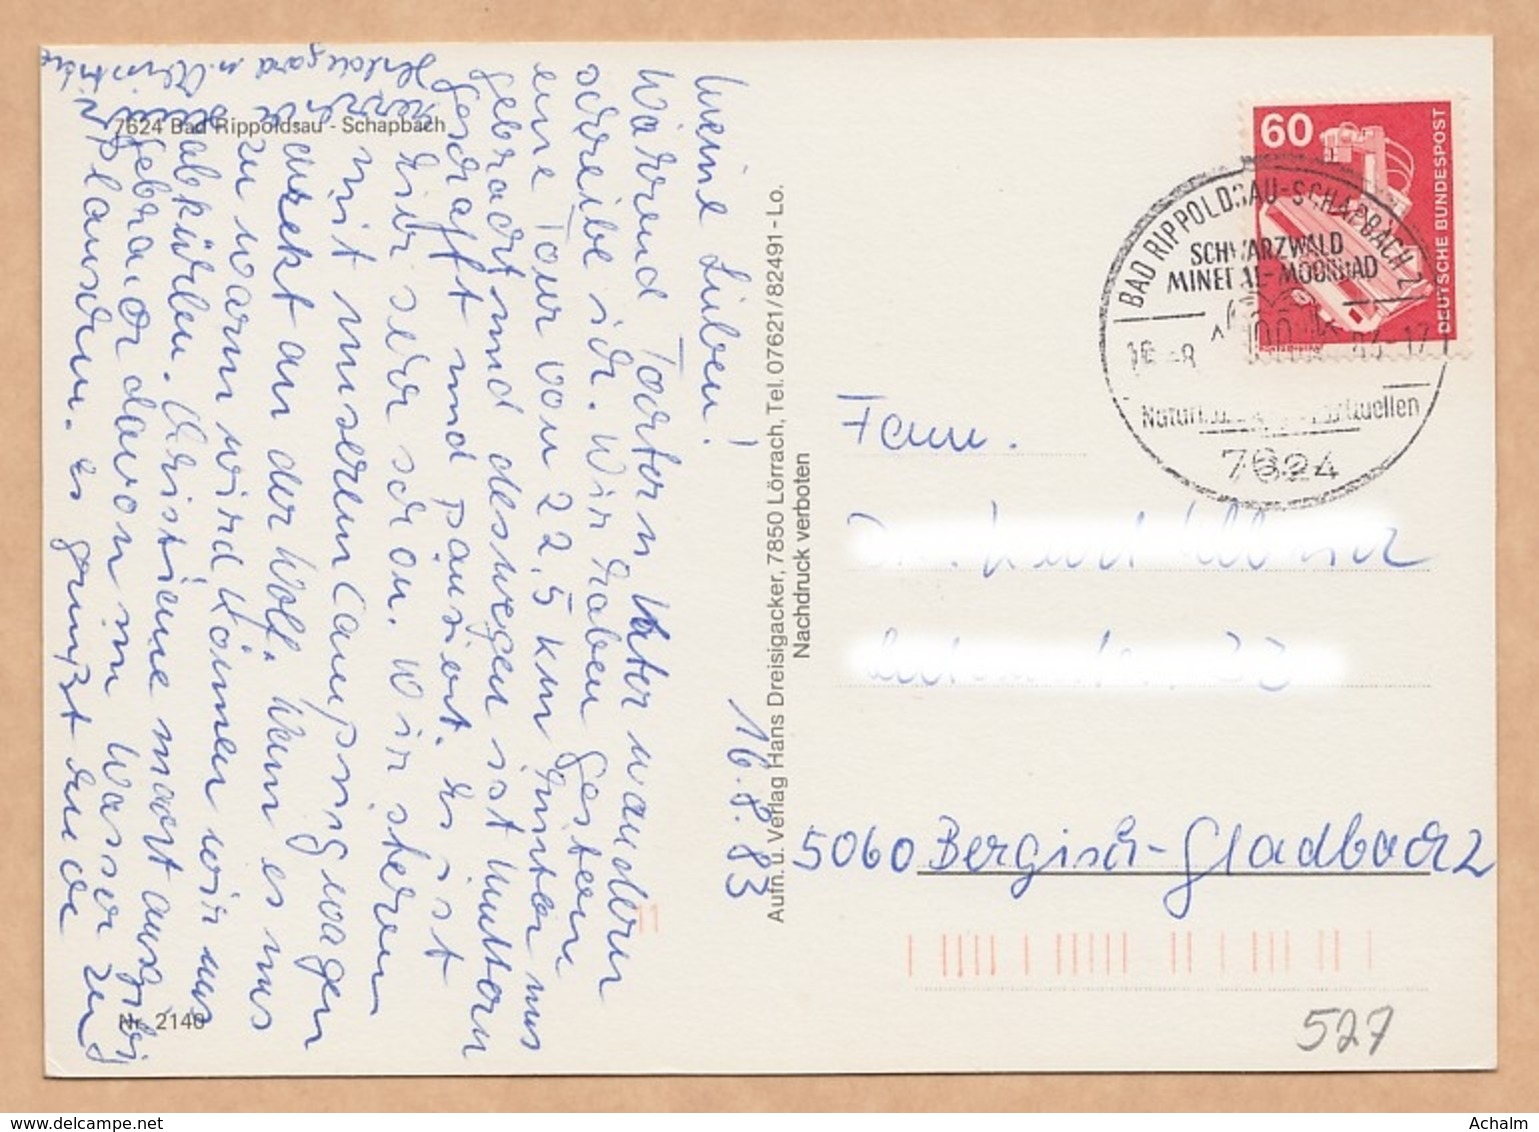 7624 Bad Rippoldsau - Schapbach
Meine Lieben!
Während Tochter u. Vater wandern
schreibe ich. Wir haben gestern
eine Tour von 22,5 km hinter uns
gebracht und deswegen ist Muttern
geschafft und pausiert. Es ist
hier sehr schön. Wir stehen
mit unserem Campingwagen
direkt an der Wolf. Wenn es uns
zu warm wird können wir uns
abkühlen. Christiane macht ausgiebig
Gebrauch davon im Wasser zu
planschen. Es grüßt Euch
Nr. 2140
16.8.83
Aufn. u. Verlag Hans Dreisigacker, 7850 Lörrach, Tel. 07621/82491 - Lo.
Nachdruck verboten
60
DEUTSCHE BUNDESPOST
BAD RIPPOLDSAU-SCHAPBACH 2
SCHWARZWALD
MINERAL-MOORBAD
7624
Fam.
5060 Bergisch-Gladbach 2
527
Achalm